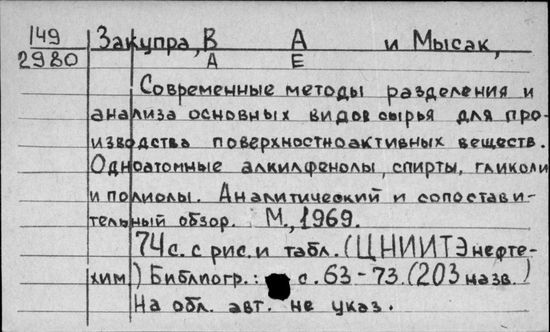 149 Закупра, В А и Мысак,
2980 А Е
Современные методы разделения и
анализа основных видов сырья для про-
изводства поверхностноактивных веществ.
Одноатомные алкилфенолы, спирты, гликоли
и полиолы. Аналитический и сопостави-
тельный обзор. М., 1969.
74 с. с рис. и табл. (ЦНИИТЭнефте-
хим.) Библиогр.: с. 63-73. (203 назв.)
На обл. авт. не указ.